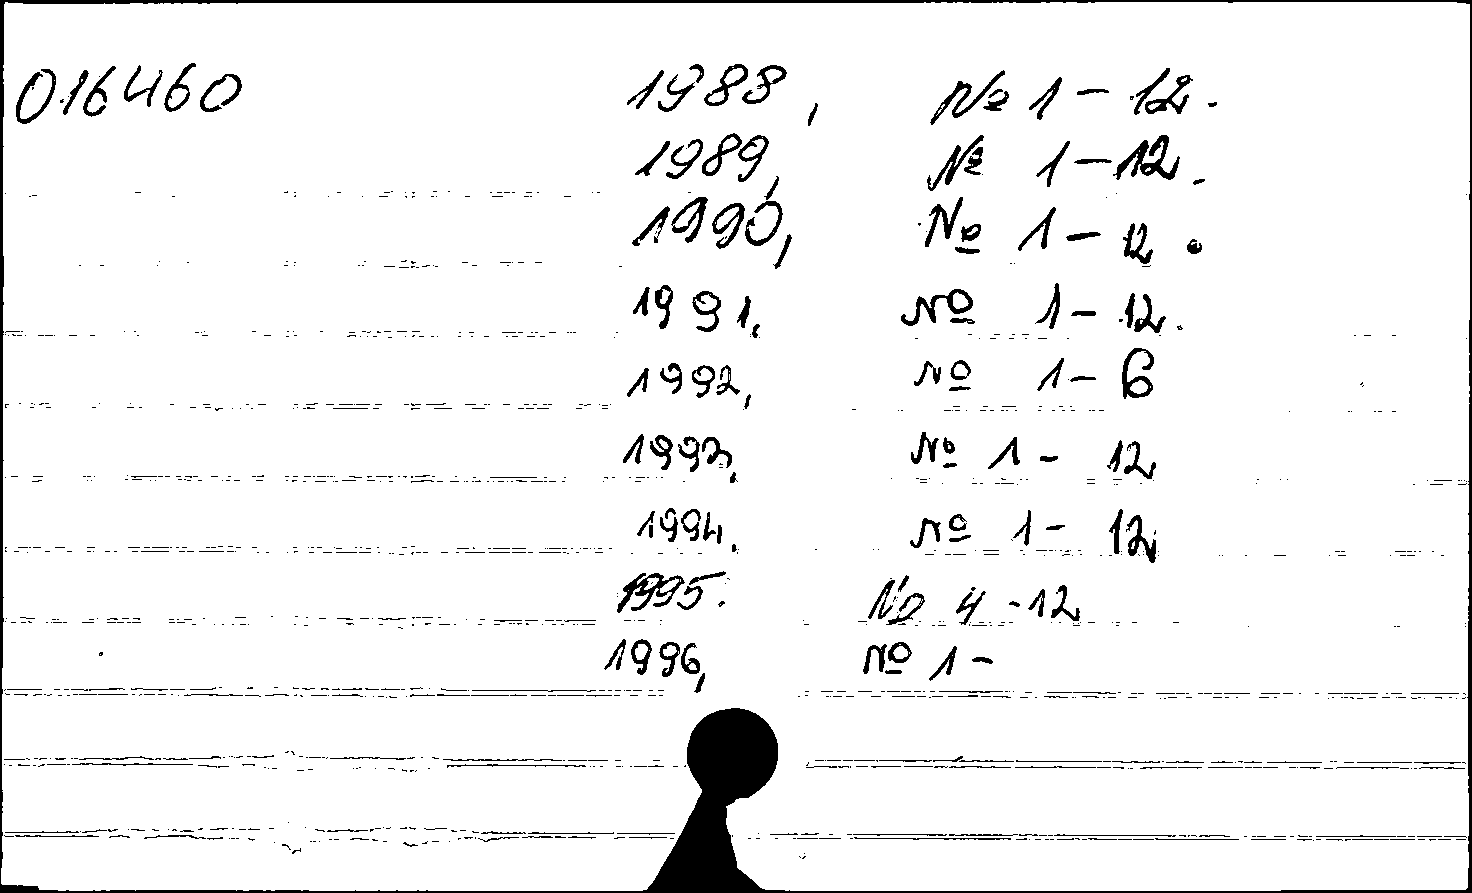 016460 1988, № 1-12.
1989, № 1-12.
1990, № 1-12.
1991. № 1-12.
1992, № 1-6
1993. № 1-12
1994. № 1-12
1995. № 4-12
1996, № 1-